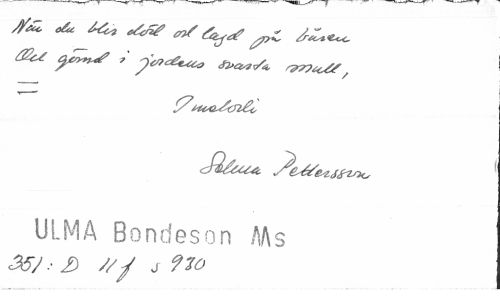 När du blir död och lagd på båren
Och gömd i jordens svarta mull,
=
I melodi
Selma Pettersson
ULMA Bondeson Ms
351: D 11 f s 930